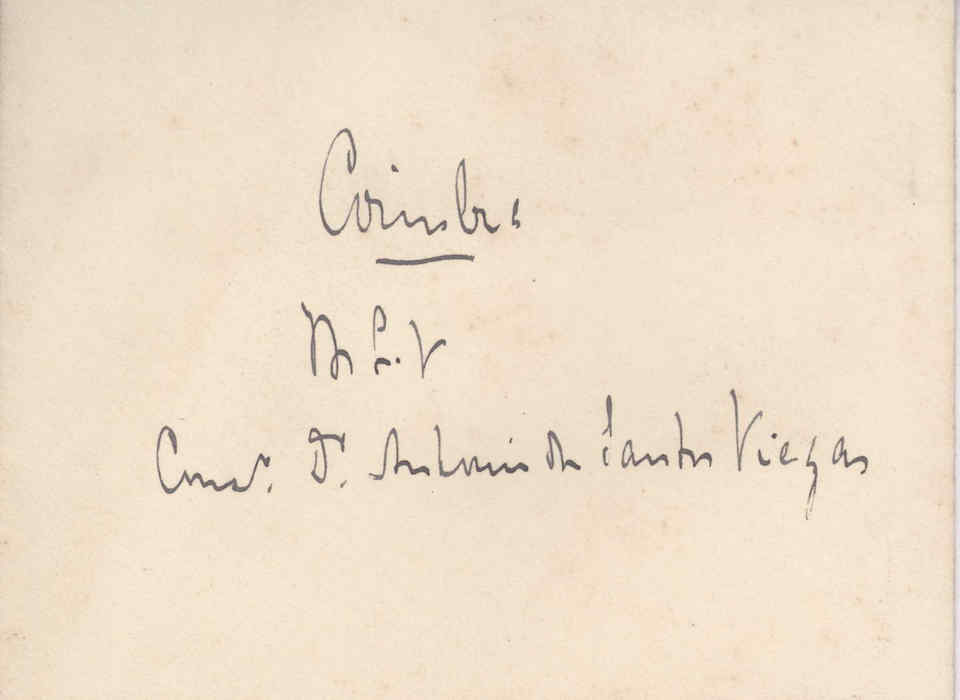 Coimbra
Cons. Dr. Antonio dos Santos Viegas